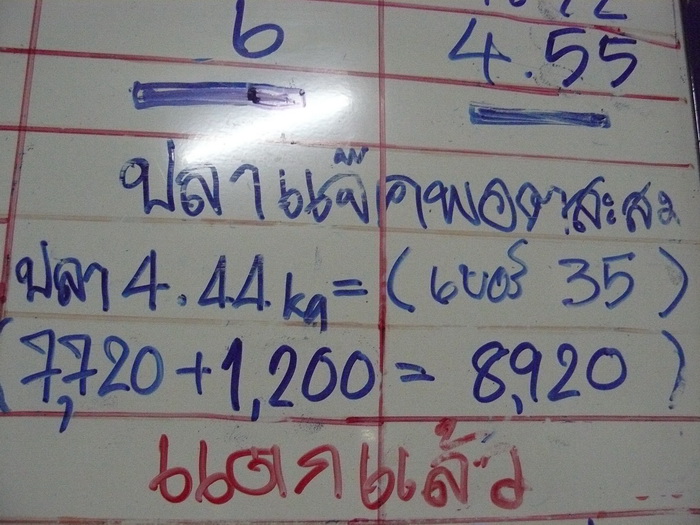 6 4.55
ปลาแจ๊คพอตสะสม
ปลา 4.44 kg = (เบอร์ 35)
(7,720 + 1,200 = 8,920)
แตกแล้ว